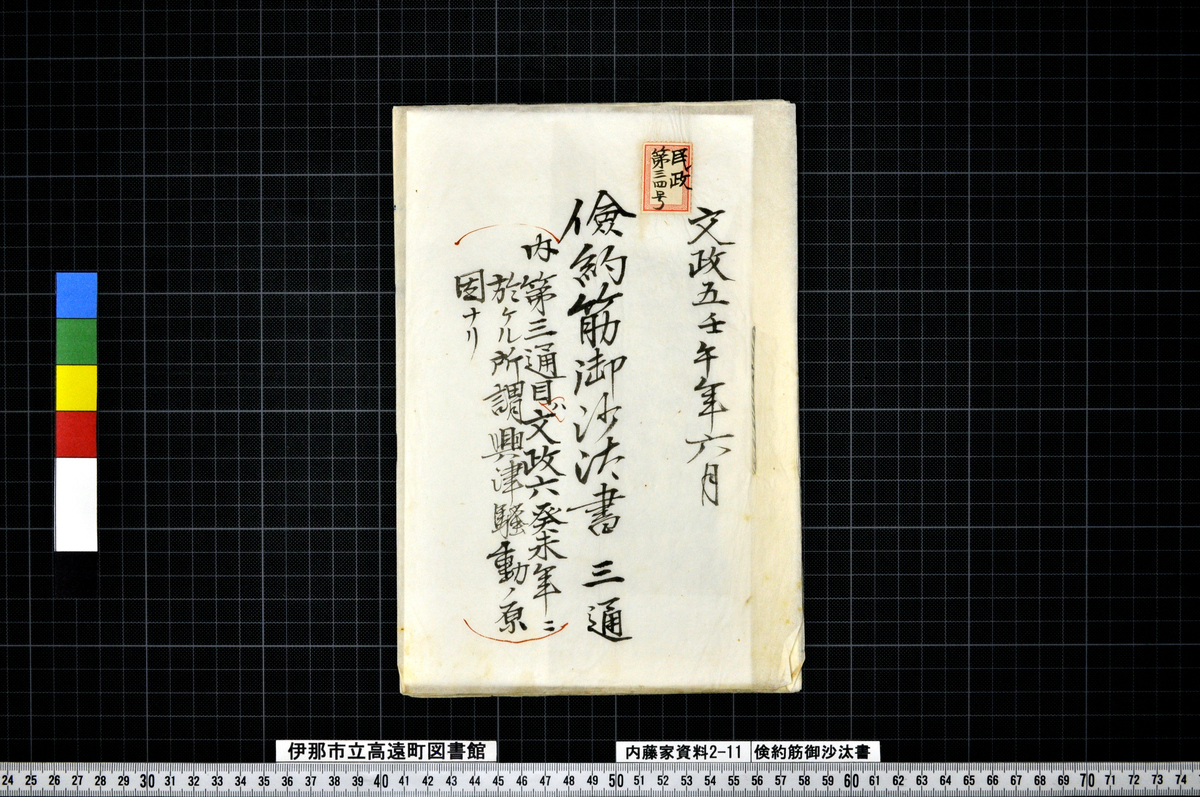 民政
第三四号
文政五壬午年六月
倹約筋御沙汰書 三通
内第三通目ハ文政六癸未年ニ
於ケル所謂興津騒動ノ原
因ナリ
伊那市立高遠町図書館
内藤家資料2-11
倹約筋御沙汰書
24 25 26 27 28 29 30 31 32 33 34 35 36 37 38 39 40 41 42 43 44 45 46 47 48 49 50 51 52 53 54 55 56 57 58 59 60 61 62 63 64 65 66 67 68 69 70 71 72 73 74